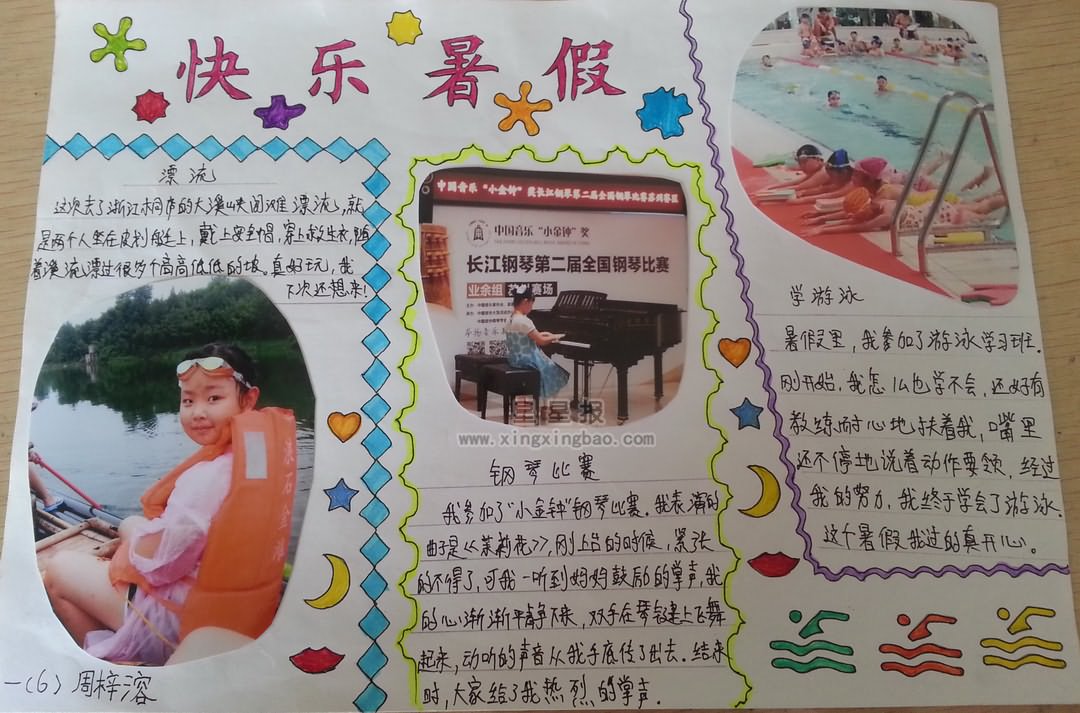 快乐暑假
漂流
这次去了浙江桐庐的大溪峡闯滩漂流,就
是两个人坐在皮划艇上,戴上安全帽,穿上救生衣,随
着溪流漂过很多个高高低低的坡。真好玩,我
下次还想来!
一(6)周梓溶
中国音乐“小金钟”奖长江钢琴第二届全国钢琴比赛苏州赛区
中国音乐“小金钟”奖
长江钢琴第二届全国钢琴比赛
业余组 苏州赛场
星星报
www.xingxingbao.com
钢琴比赛
我参加了“小金钟”钢琴比赛。我表演的
曲子是《茉莉花》,刚上台的时候,紧张
的不得了,可我一听到妈妈鼓励的掌声,我
的心渐渐平静下来,双手在琴键上飞舞
起来,动听的声音从我手底传了出去。结束
时,大家给了我热烈的掌声。
学游泳
暑假里,我参加了游泳学习班。
刚开始,我怎么也学不会,还好有
教练耐心地扶着我,嘴里
还不停地说着动作要领,经过
我的努力,我终于学会了游泳。
这个暑假我过的真开心。